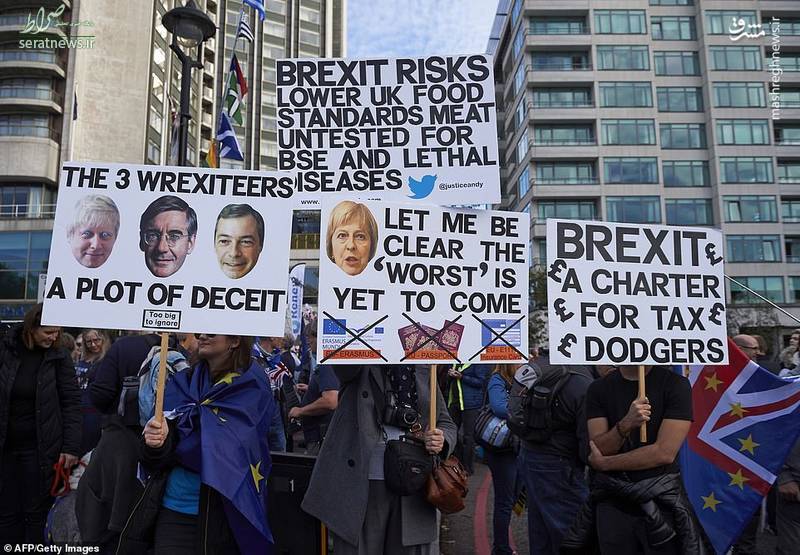 BREXIT RISKS
LOWER UK FOOD
STANDARDS MEAT
UNTESTED FOR
BSE AND LETHAL
DISEASES
@justiceandy
THE 3 WREXITEERS
A PLOT OF DECEIT
Too big
to ignore
LET ME BE
CLEAR THE
'WORST' IS
YET TO COME
EU-ERASMUS
EU-PASSPORT
BREXIT
£A CHARTER
FOR TAX
DODGERS
صراط
seratnews.ir
مشرق
mashreghnews.ir
© AFP/Getty Images